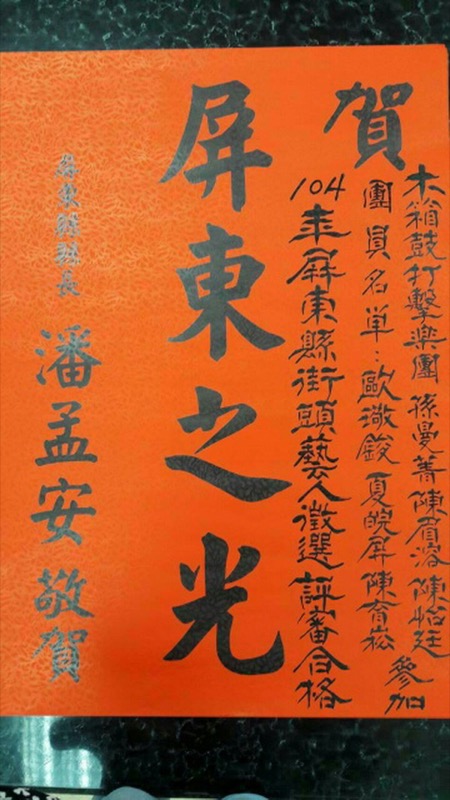 賀
木箱鼓打擊樂團 孫曼菁 陳眉溶 陳怡廷 參加
團員名単：歐撒鋑 夏皖屏 陳育崧
104年屏東縣街頭藝人徵選評審合格
屏東之光
屏東縣縣長
潘孟安 敬賀